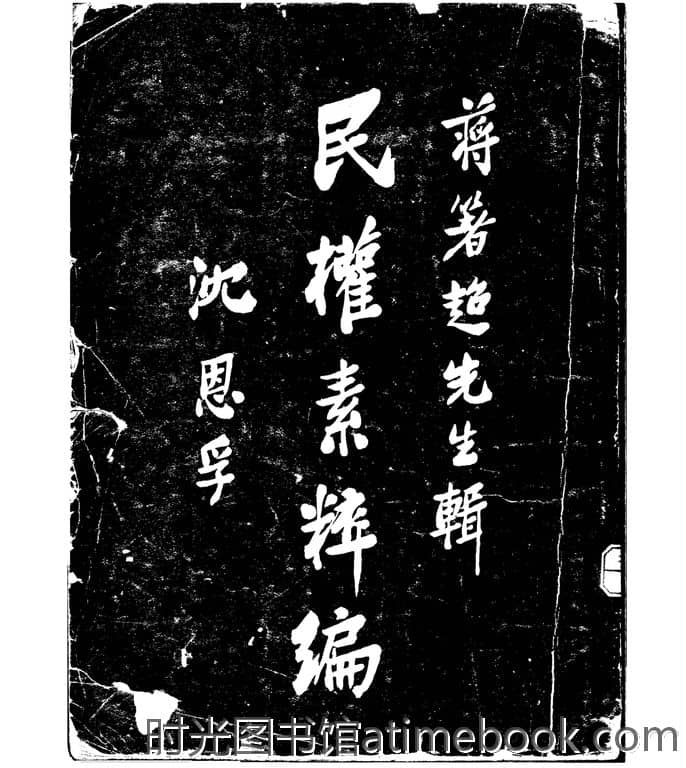 蔣箸超先生輯
民權素粹編
沈恩孚
时光图书馆atimebook.com